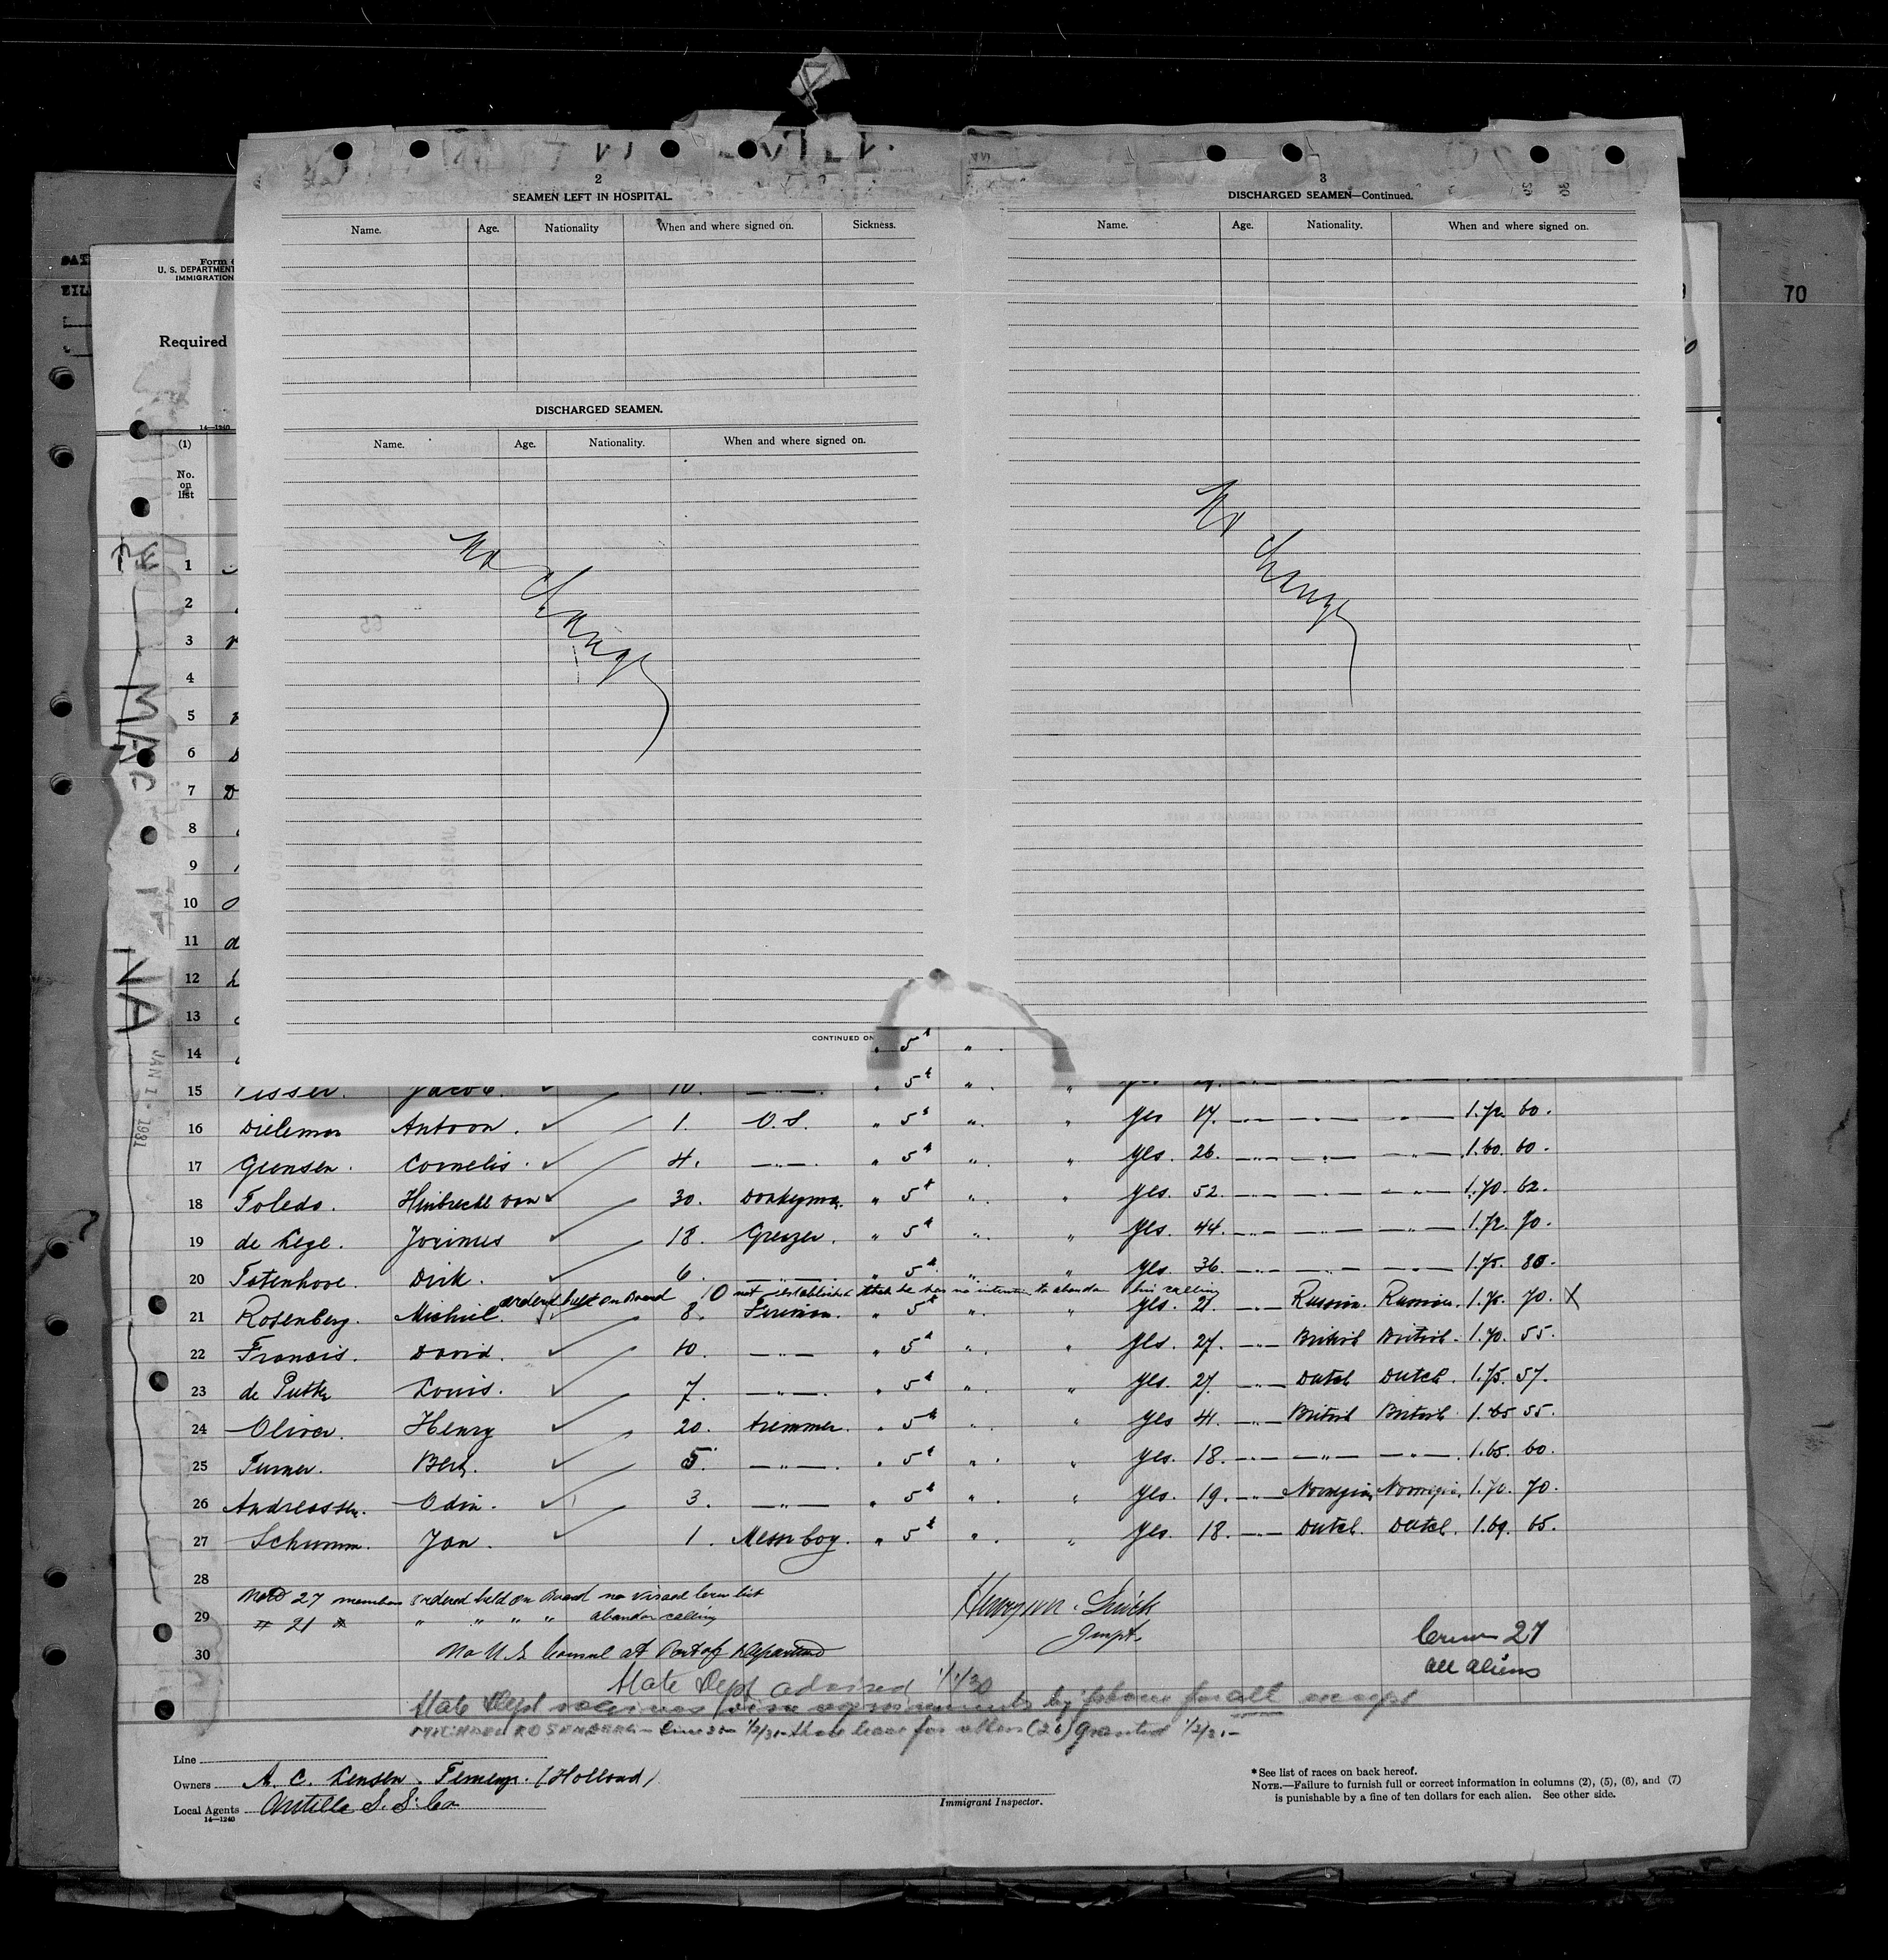 2
SEAMEN LEFT IN HOSPITAL.
Name. Age. Nationality When and where signed on. Sickness.
DISCHARGED SEAMEN.
Name. Age. Nationality. When and where signed on.
No
Change
CONTINUED ON
3
DISCHARGED SEAMEN—Continued.
Name. Age. Nationality. When and where signed on.
No
Change
70
Form
U. S. DEPARTMENT
IMMIGRATION
Required
14—1240
(1)
No.
on
list
1
2
3
4
5
6
7
8
9
10
11
12
13
14 " 5th "
15 Visser. Jacob. 10. —"— " 5th " "
16 Dieleman Antoon. 1. O.S. " 5th " " yes 17. —"— —"— —"— 1.72 60.
17 Cornelis. 4. —"— " 5th " " yes. 26. —"— —"— —"— 1.60. 60.
18 Toledo. van 30. Donkeyman. " 5th " " yes. 52. —"— —"— —"— 1.70. 62.
19 de Lege. 18. " 5th " " yes. 44. —"— —"— —"— 1.72. 70.
20 Totenhove. Dirk. 6. —"— " 5th " " yes. 36. —"— —"— —"— 1.75. 80.
ordered held on Board not established that he has no intention to abandon his calling
21 Rosenberg. Michael. 8. Fireman. " 5th " " yes. 21. —"— Russian. Russian. 1.75. 70. X
22 Francis. David. 10. —"— " 5th " " yes. 27. —"— British British. 1.70. 55.
23 de Putter Louis. 7. —"— " 5th " " yes. 27. —"— Dutch Dutch. 1.75. 57.
24 Oliver. Henry 20. trimmer. " 5th " " yes 41. —"— British British 1.65 55.
25 Turner. Bert. 5. —"— " 5th " " yes. 18. —"— —"— —"— 1.65. 60.
26 Andreassen. Odin. 3. —"— " 5th " " yes. 19. —"— Norwegian Norwegian. 1.70. 70.
27 Schumm. Jan. 1. Messboy. " 5th " " yes. 18. —"— Dutch. Dutch. 1.69. 65.
28
Note 27 members ordered held on Board no visaed Crew list
29 # 21 " " " " abandon calling
30 No U.S. Consul at Port of Departure
Inspt.
Crew 27
all aliens
State Dept advised 1/1/30
State Dept waives visa requirements by phone for all except
MICHAEL ROSENBERG — Line 21 — 1/2/31 — shore leave for others (26) granted 1/2/31 —
Line
Owners A. C. Lensen. Terneuzen. (Holland)
Local Agents Antilla S. S. Co
14—1240
Immigrant Inspector.
* See list of races on back hereof.
NOTE.—Failure to furnish full or correct information in columns (2), (5), (6), and (7)
is punishable by a fine of ten dollars for each alien. See other side.
JAN 1 - 1931